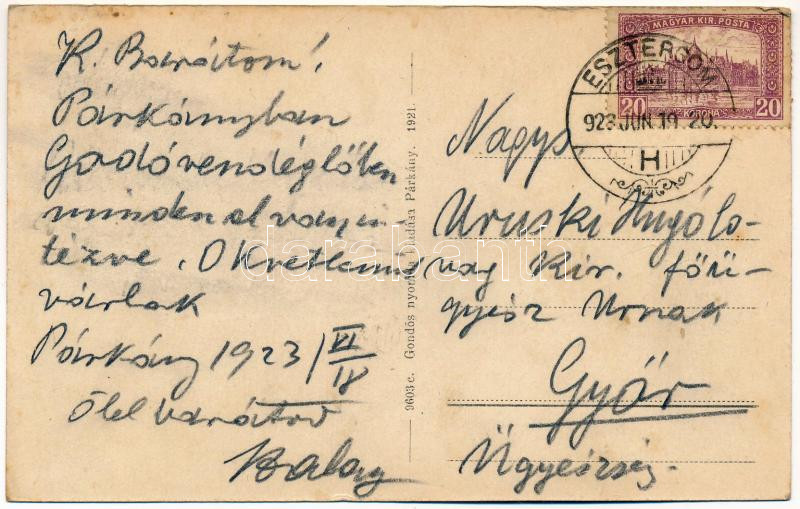 K. Barátom!
Párkányban
Godóvendéglőben
minden el van in-
tézve. Okvetlenül
várlak
Párkány 1923/VI/18
Ölel barátod
Balag
9603 c. Gondós nyomda kiadása Párkány. 1921.
MAGYAR KIR. POSTA
20 KORONA 20
ESZTERGOM
923 JUN. 19 20.
H
Nagys
Uruski Hugóló-
nag Kir. főü-
gyész Urnak
Győr
Ügyészség.
darabanth